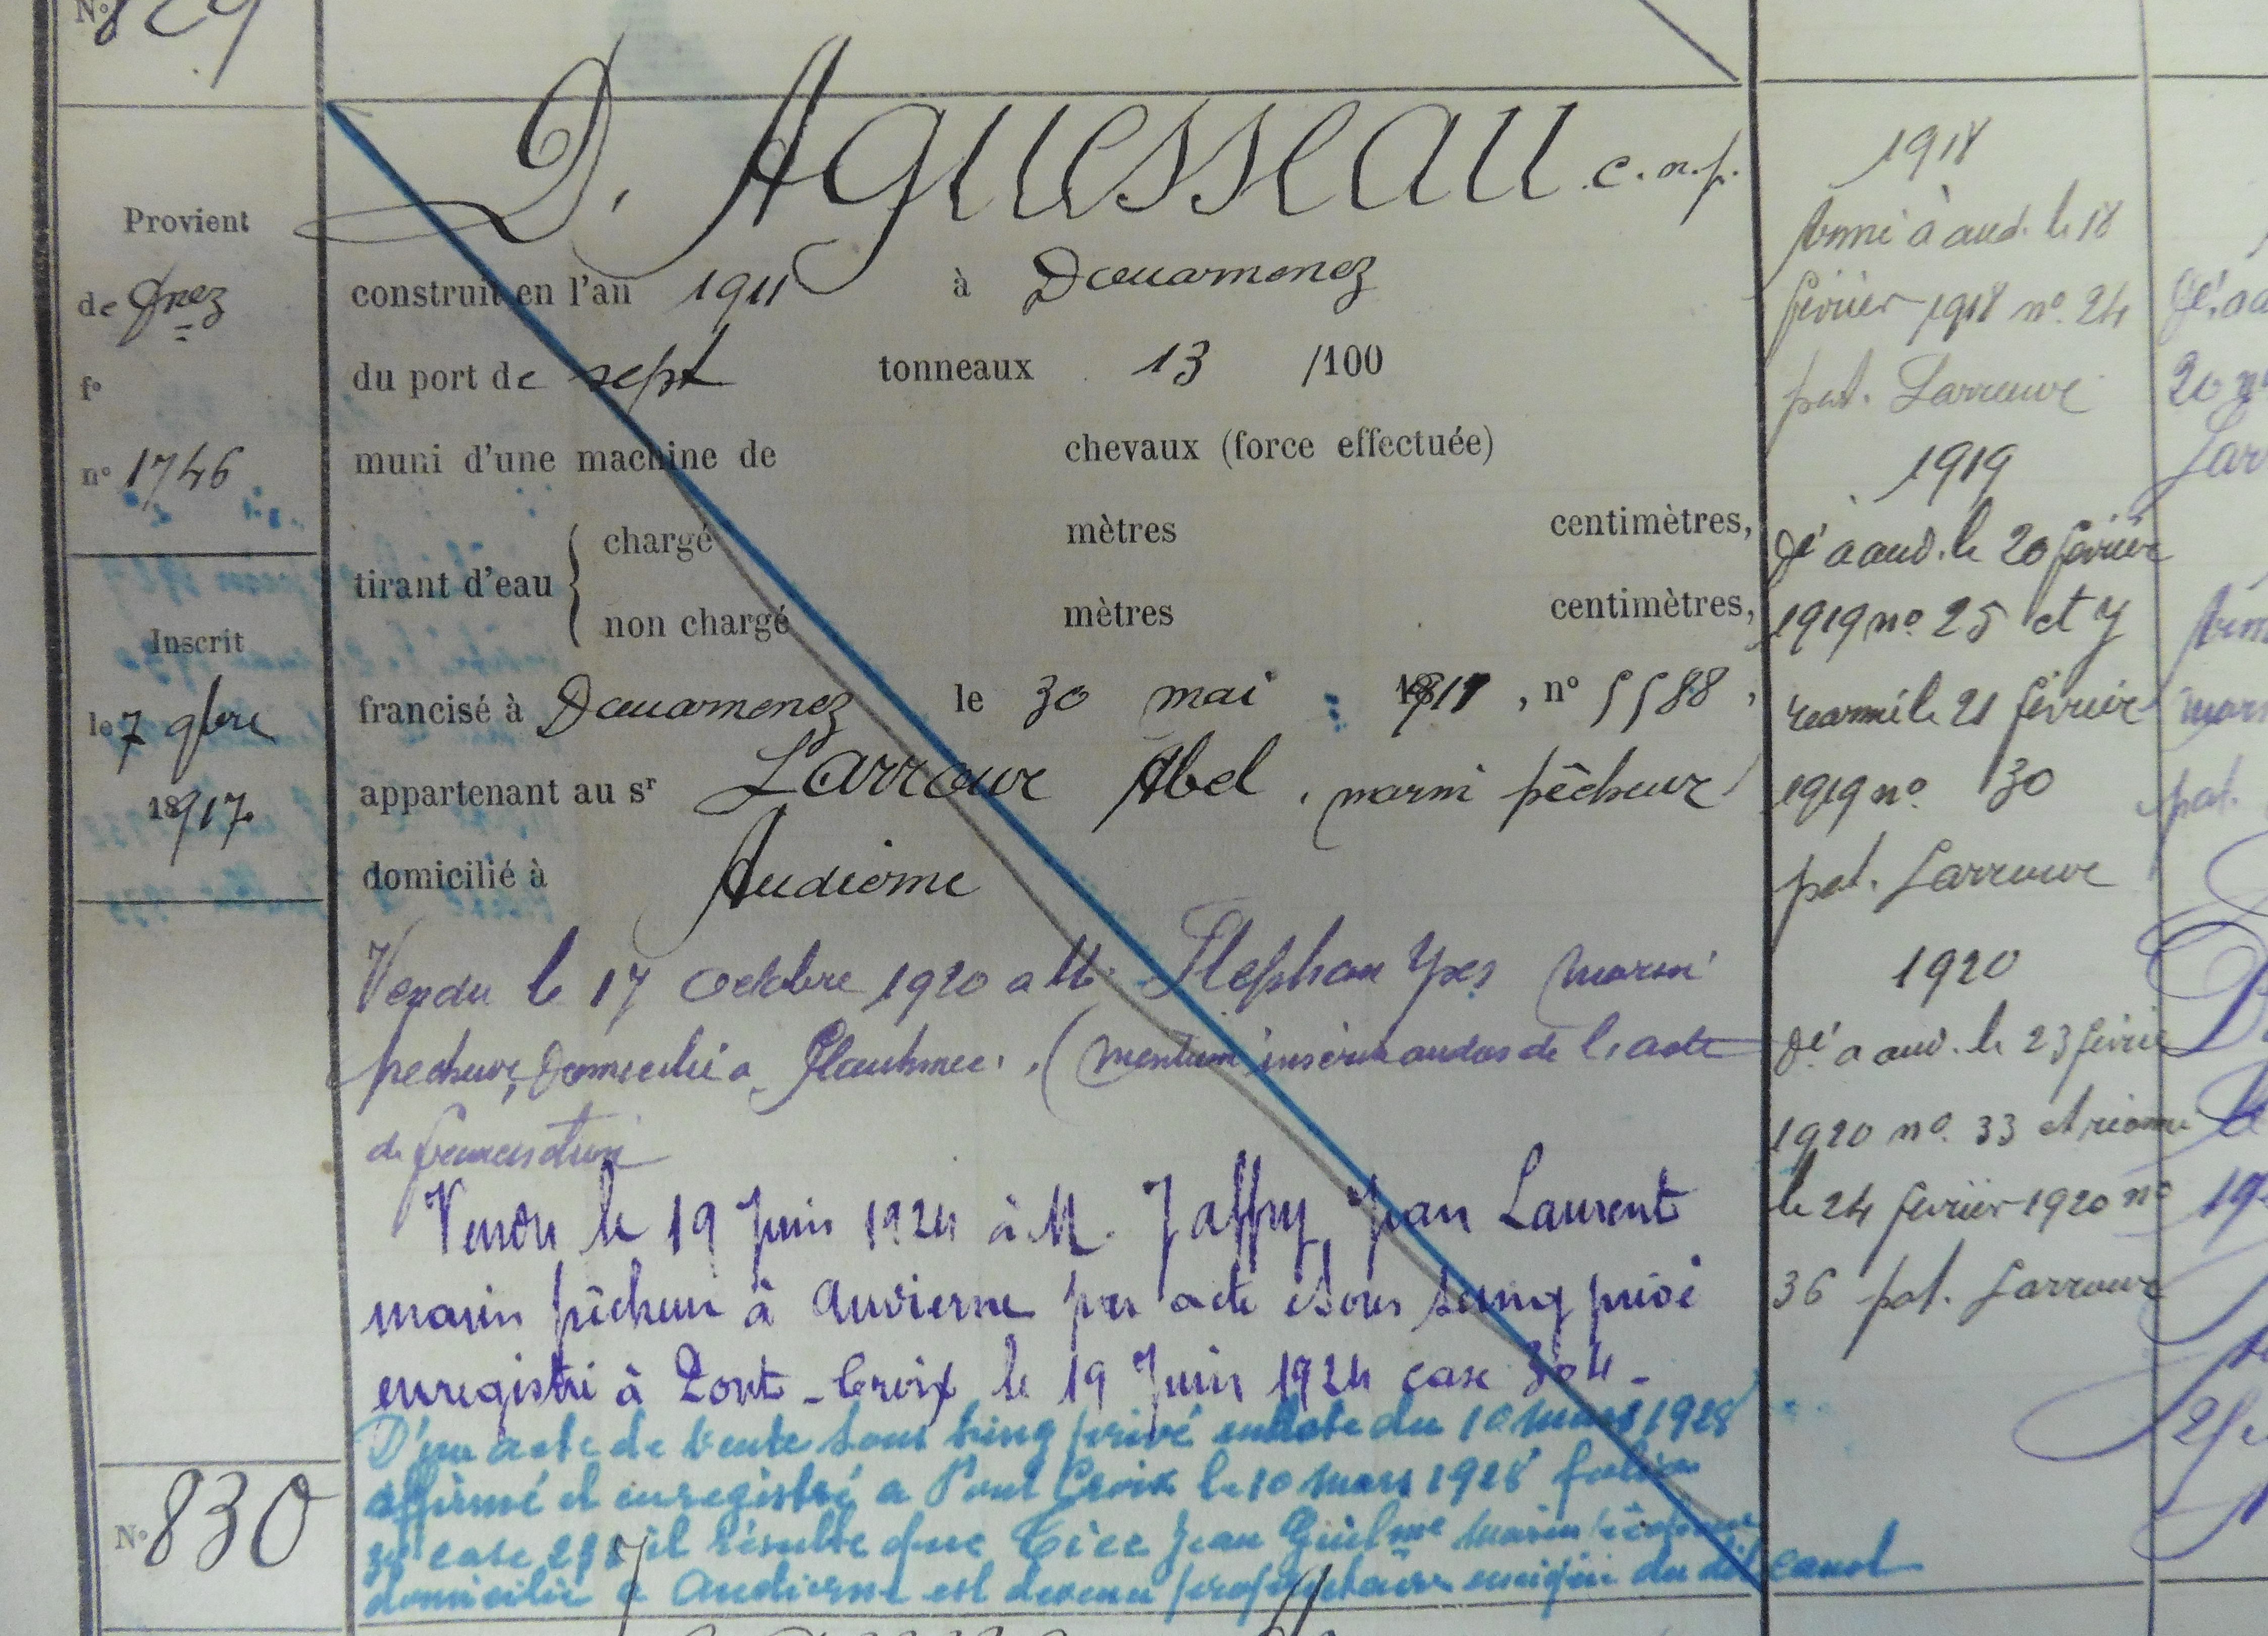 N° 829
D'Aguesseau c. n. p.
Provient
de Dnez
f°
n° 1746
Inscrit
le 7 9bre
18917
N° 830
construit en l'an 1911 à Douarnenez
du port de sept tonneaux 13 /100
muni d'une machine de chevaux (force effectuée)
tirant d'eau { chargé mètres centimètres,
non chargé mètres centimètres,
francisé à Douarnenez le 30 mai 1911, n° 5588,
appartenant au sr Larrour Abel, marin pêcheur
domicilié à Audierne
Vendu le 17 octobre 1920 a Mr Stephan Yves marin
pecheur, domicilié a Plouhinec. (mention inscrite au dos de l'acte
de francisation
Vendu le 19 Juin 1924 à M. Jaffry, Jean Laurent
marin pêcheur à Audierne par acte sous seing privé
enregistré à Pont-Croix le 19 Juin 1924 case 304-
D'un acte de vente sous seing privé en date du 10 mars 1928
affirmé et enregistré a Pont Croix le 10 mars 1928 folio
39 case 298 il résulte que Jean Guilme marin pêcheur
domicilié a Audierne est devenu propriétaire unique du dit canot
1918
Armé à aud. le 18
février 1918 n° 24
pat. Larrour
1919
Dé à aud. le 20 février
1919 n° 25 et y
réarmé le 21 février
1919 n° 30
pat. Larrour
1920
Dé à aud. le 23 février
1920 n° 33 et réarmé
le 24 février 1920 n°
36 pat. Larrour